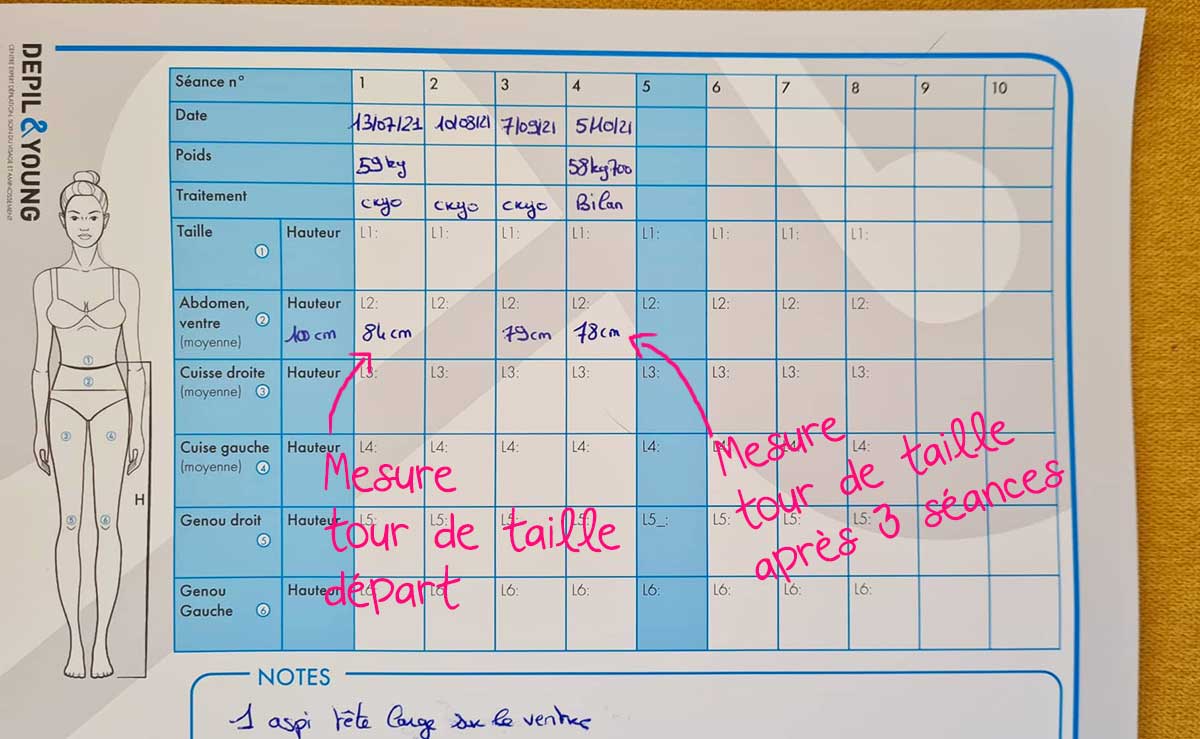 DEPIL & YOUNG
CENTRE EXPERT DÉPILATION, SOIN DU VISAGE ET AMINCISSEMENT
Séance n° 1 2 3 4 5 6 7 8 9 10
Date 13/07/21 10/08/21 7/09/21 5/10/21
Poids 59kg 58kg700
Traitement cryo cryo cryo Bilan
Taille 1 Hauteur L1: L1: L1: L1: L1: L1: L1: L1:
Abdomen, Hauteur L2: L2: L2: L2: L2: L2: L2: L2:
ventre 2 100cm 84cm 79cm 78cm
(moyenne)
Cuisse droite Hauteur L3: L3: L3: L3: L3: L3: L3: L3:
(moyenne) 3
Cuise gauche Hauteur L4: L4: L4: L4: L4: L4: L4: L4:
(moyenne) 4
Genou droit Hauteur L5: L5: L5: L5: L5_: L5: L5: L5:
5
Genou Hauteur L6: L6: L6: L6: L6: L6: L6: L6:
Gauche 6
Mesure
tour de taille
départ
Mesure
tour de taille
après 3 séances
1
2
3 4
H
5 6
NOTES
1 aspi tête large sur le ventre